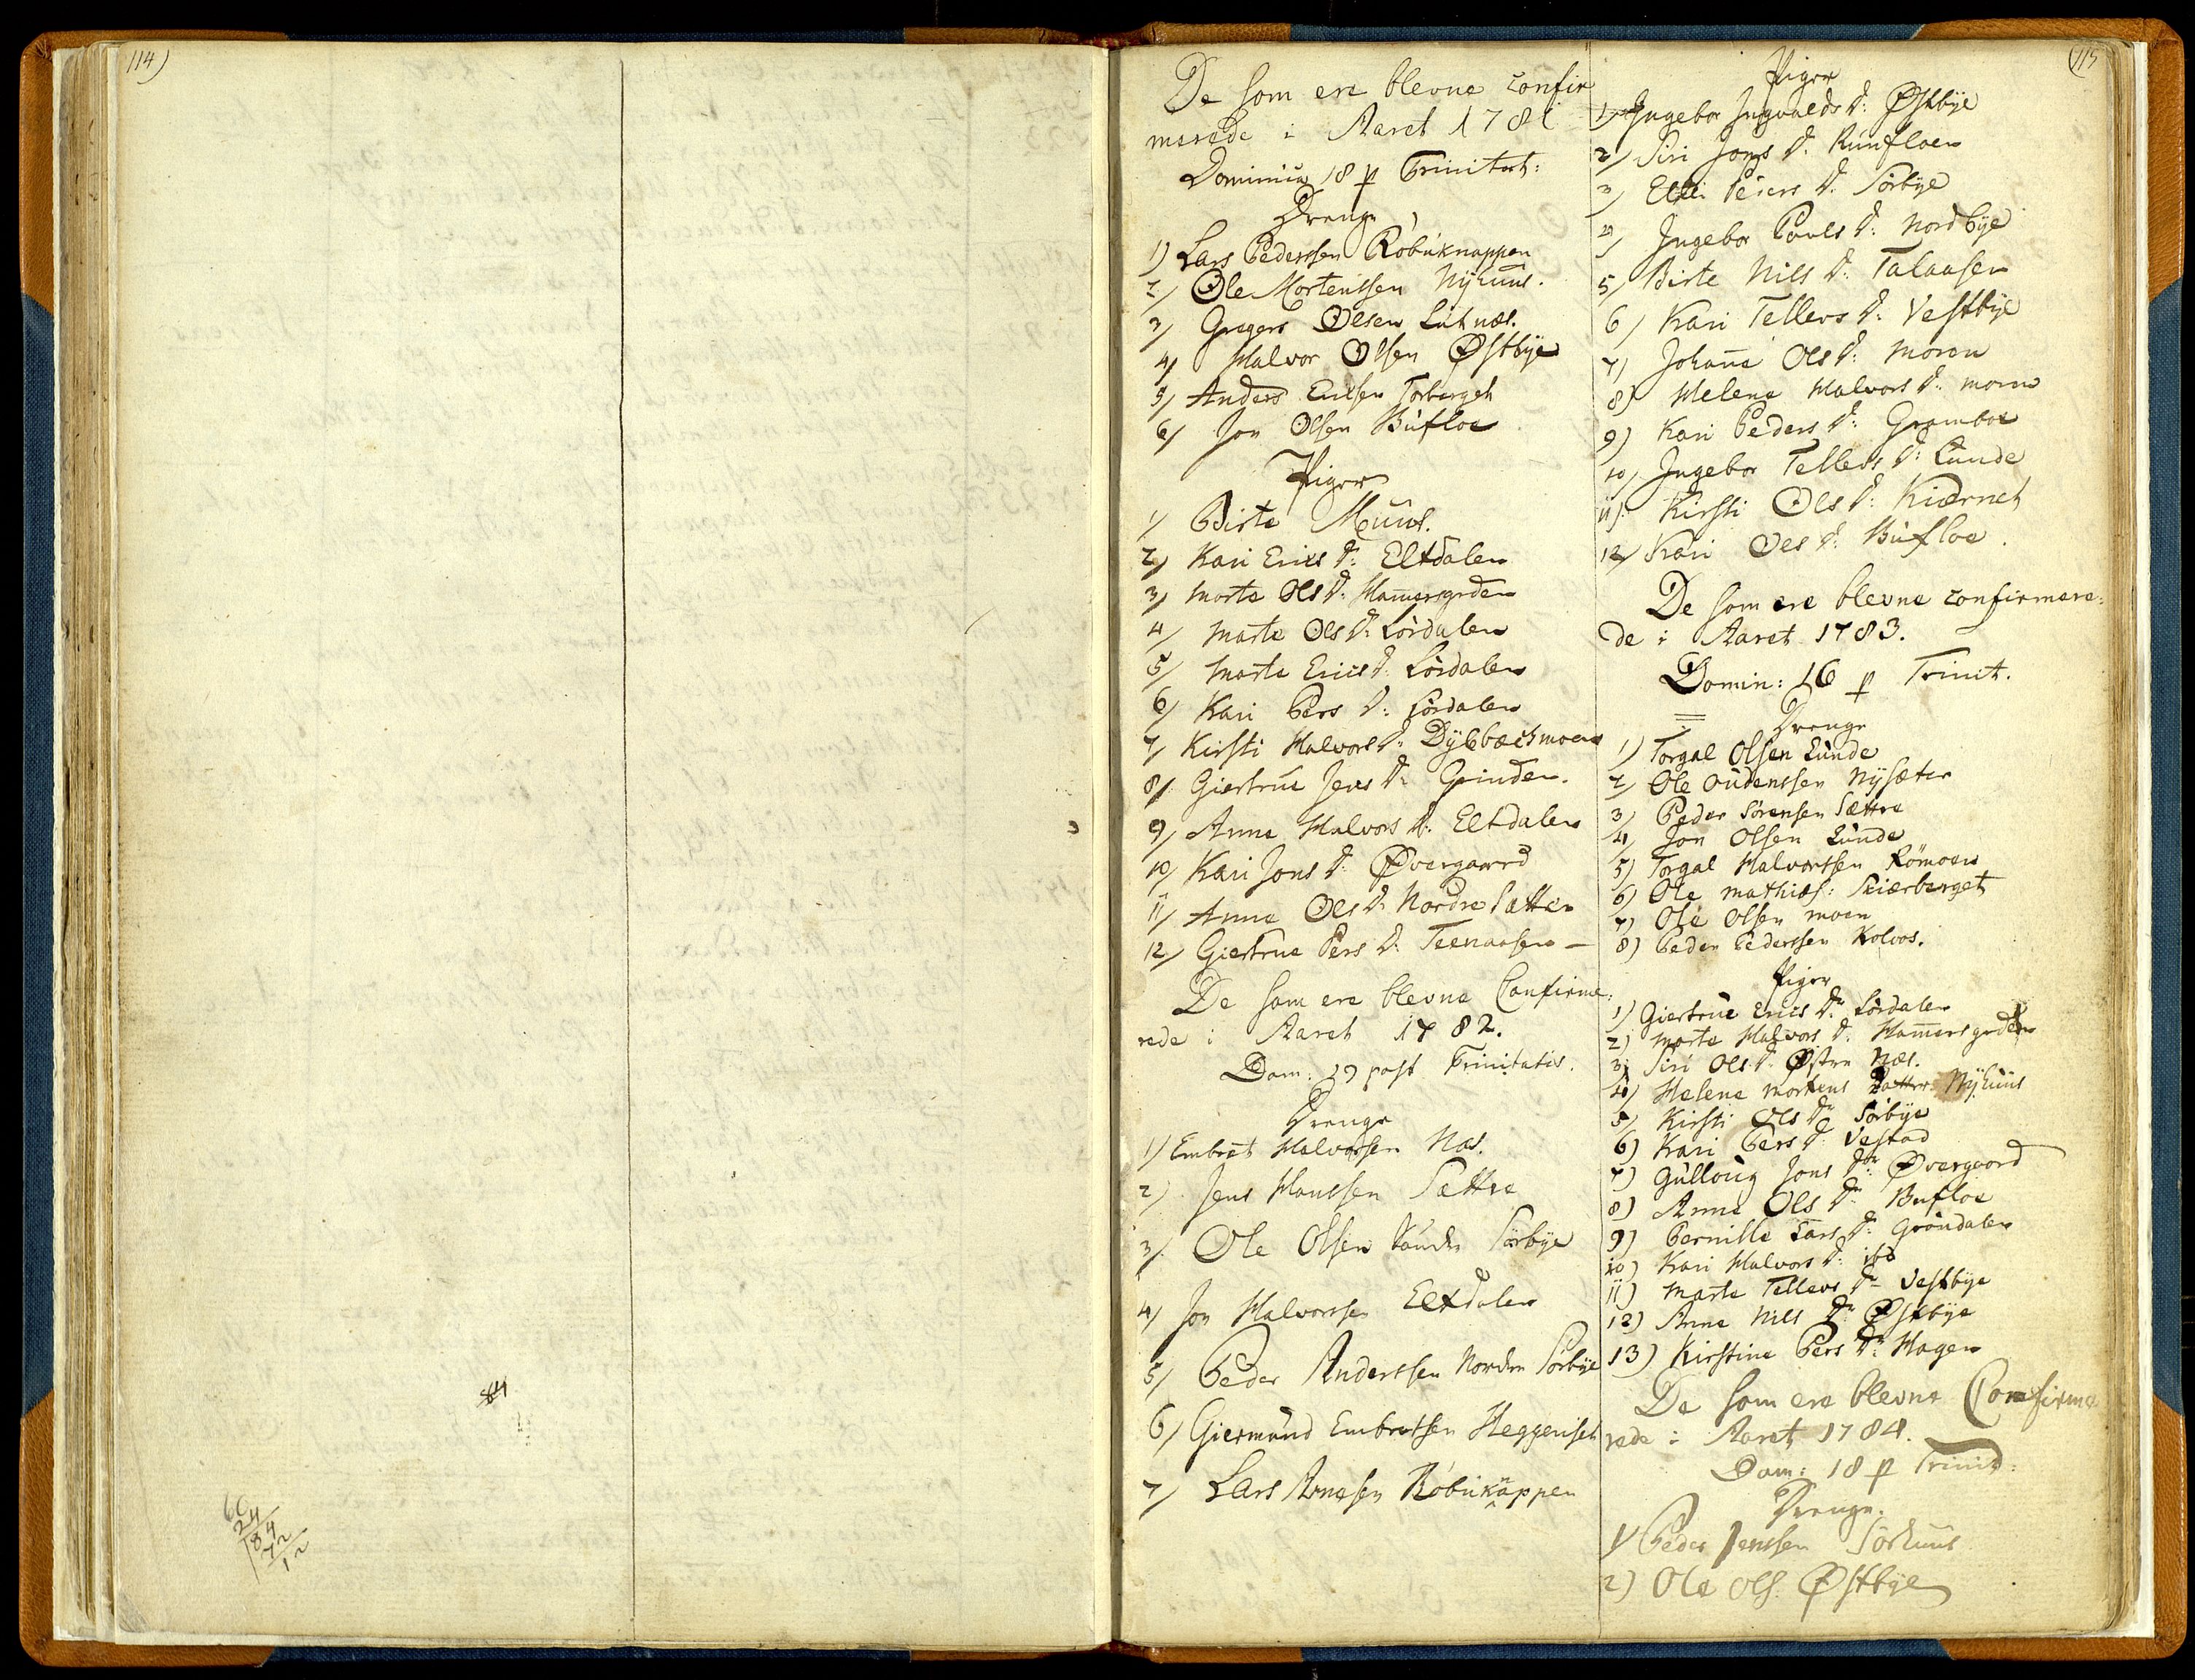 114)
84
60
24
184
72
12
De som ere blevne confir
merede i Aaret 1781
Dominica 18 p Trinitat:
Drenge
1) Lars Pederssen Röbuknappen
2/ Ole Mortenssen Nÿhuus.
3/ Gregers Olsen Lutnæs.
4/ Halvor Olsen Østbÿe
5/ Anders Ericsen Torberget
6/ Jon Olsen Bufloe
Piger
1/ Birte Muus.
2/ Kari Erics Dr: Eltdalen
3/ Marte Ols Dr: Ham̅ersgrden
4/ Marte Ols Dr: Lördalen
5/ Marte Erics Dr: Lördalen
6/ Kari Pers Dr: Lördalen
7/ Kirsti Halvors Dr: Dÿbbækmoen
8/ Giertrue Jens Dr: Grinden.
9/ Anne Halvors Dr: Eltdalen
10/ Kari Jons Dr: Øvergaard
11/ Anne Ols Dr: Nordre Sætter
12/ Giertrue Pers Dr: Teenaasen –
De som ere blevne Confirme:
rede i Aaret 1782.
Dom: 19 post Trinitatis.
Drenge
1) Embret Halvorsen Næs.
2) Jens Hanssen Sættre
3/ Ole Olsen Söndre Sörbÿe
4/ Jon Halvorsen Eltdalen
5/ Peder Anderssen Nordre Sörbÿe
6/ Giermund Embretsen Heggeriset
7/ Lars Arnesen Röbuknappen
115
Piger
1) Ingebor Ingvalds Dr: Østbÿe
2/ Siri Jons Dr: Runfloen
3/ Elli Peders Dr: Sörbÿe
4/ Ingebor Povels Dr: Nordbÿe
5/ Birte Nils Dr: Talaasen
6/ Kari Tellevs Dr: Vestbÿe
7/ Johan̅e Ols Dr: Moren
8/ Helene Halvors Dr: Moren
9) Kari Peders Dr: Gramboe
10/ Ingebor Tellevs Dr: Lunde
11/ Kirsti Ols Dr: Kiærnet
12/ Kari Ols Dr: Bufloe.
De som ere blevne confirmere:
de i Aaret 1783.
Domin: 16 p Trinit.
Drenge
1) Torgal Olsen Lunde
2/ Ole Oudenssen Nÿsæter
3/ Peder Sörensen Sættre
4/ Jon Olsen Lunde
5) Torgal Halvortsen Römoen
6) Ole Mathies: Skiærberget
7) Ole Olsen Moen
8) Peder Pederssen Kolvos.
Piger
1) Giertrue Erics Dr Lördalen
2) Marte Halvors Dr: Ham̅ersgrden
3) Siri Ols Dr: Østre Næs.
4) Helene Mortens Datter Nÿhuus
5/ Kirsti Ols Dr Sörbÿe
6) Kari Pers Dr: Vestad
7) Gulloug Jons Dr: Øvergaard
8) Anne Ols Dr Bufloe
9) Pernille Lars Dr: Gröndalen
10) Kari Halvors Dr: ibd
11) Marte Tellevs Dr Vestbÿe
12) Anne Nils Dr Østbÿe
13) Kirstine Pers Dr: Hagen
De som ere blevne Confirme
rede i Aaret 1784.
Dom: 18 p Trinit:
Drenge.
1/ Peder Jenssen Sörhuus
2) Ole Ols: Østbÿe